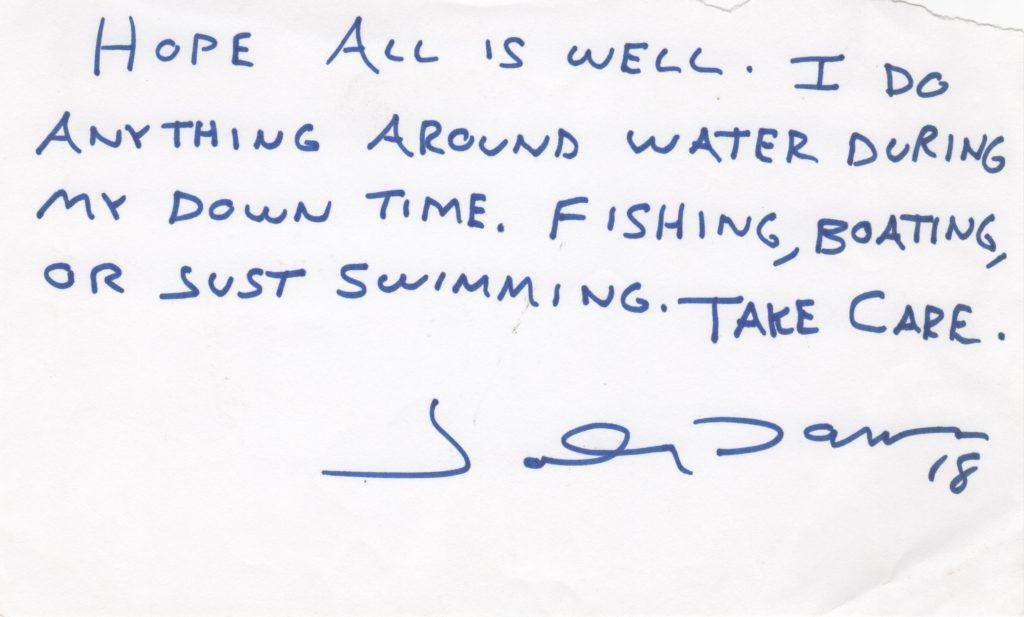 HOPE ALL IS WELL. I DO
ANYTHING AROUND WATER DURING
MY DOWN TIME. FISHING, BOATING,
OR JUST SWIMMING. TAKE CARE.
18